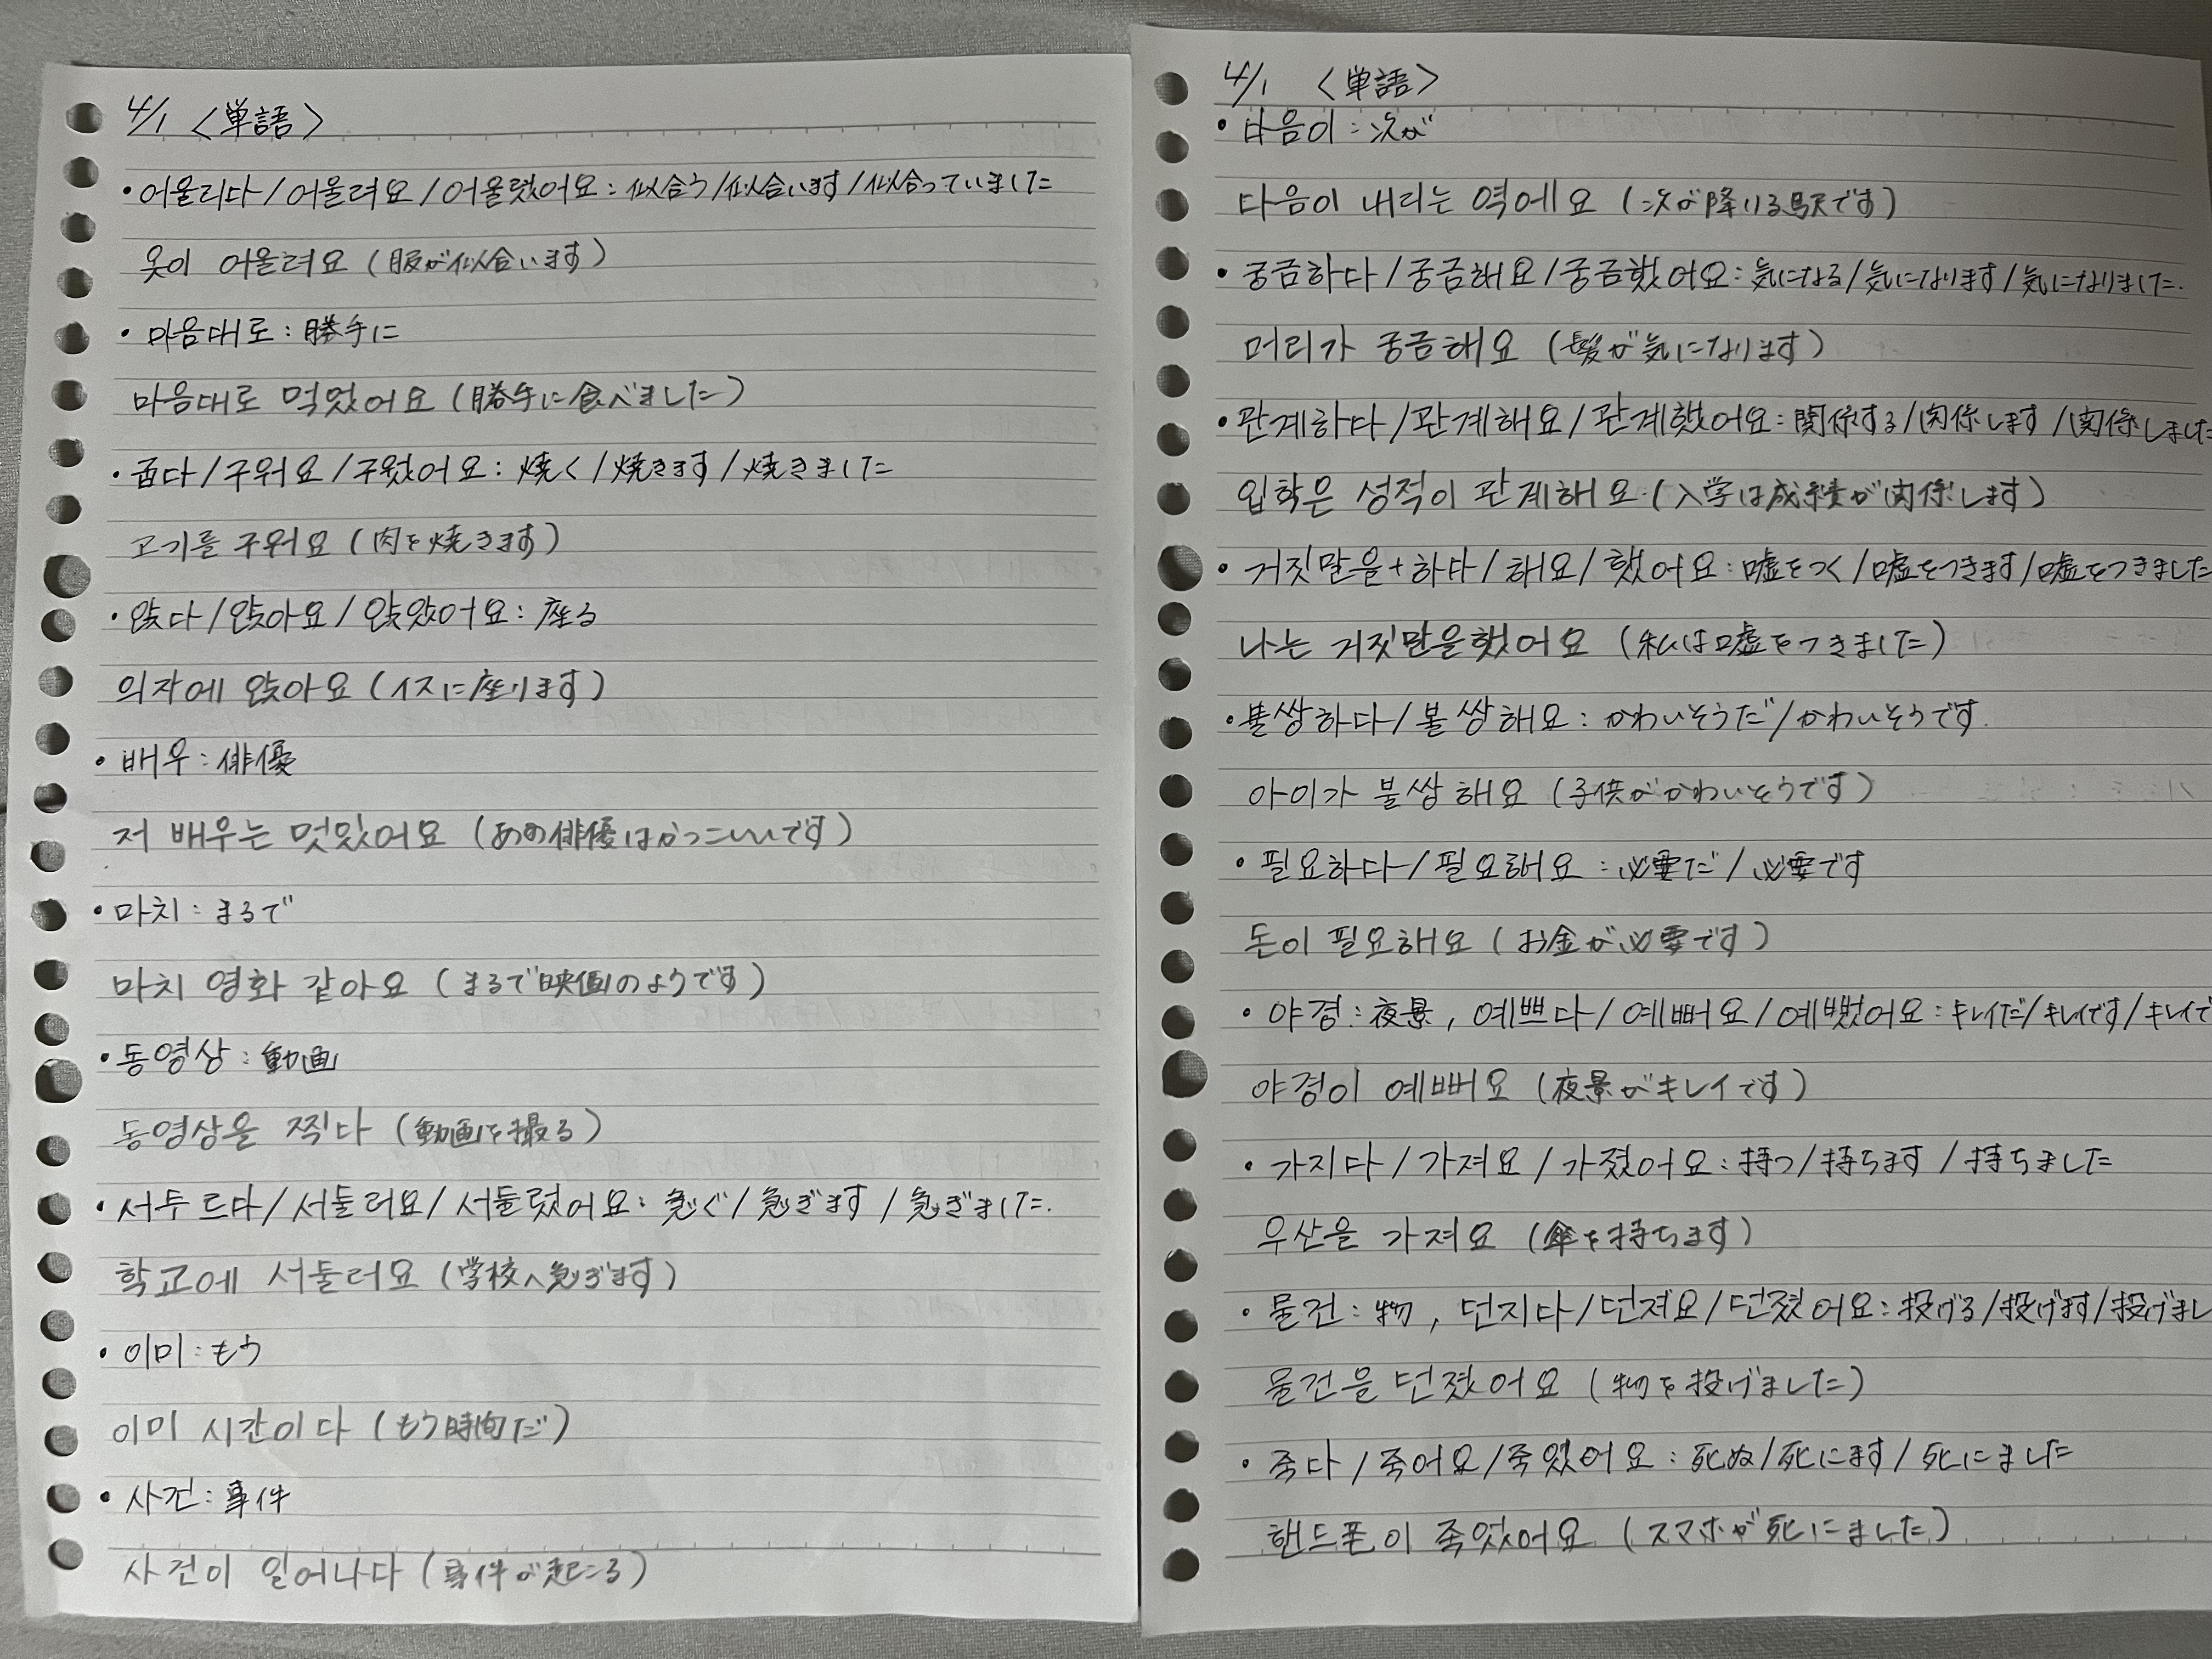 4/1 〈単語〉
・어울리다/어울려요/어울렸어요:似合う/似合います/似合っていました
옷이 어울려요(服が似合います)
・마음대로:勝手に
마음대로 먹었어요(勝手に食べました)
・굽다/구워요/구웠어요:焼く/焼きます/焼きました
고기를 구워요(肉を焼きます)
・앉다/앉아요/앉았어요:座る
의자에 앉아요(イスに座ります)
・배우:俳優
저 배우는 멋있어요(あの俳優はかっこいいです)
・마치:まるで
마치 영화 같아요(まるで映画のようです)
・동영상:動画
동영상을 찍다(動画を撮る)
・서두르다/서둘러요/서둘렀어요:急ぐ/急ぎます/急ぎました.
학교에 서둘러요(学校へ急ぎます)
・이미:もう
이미 시간이다(もう時間だ)
・사건:事件
사건이 일어나다(事件が起こる)
4/1 〈単語〉
・다음이:次が
다음이 내리는 역에요(次が降りる駅です)
・궁금하다/궁금해요/궁금했어요:気になる/気になります/気になりました.
머리가 궁금해요(髪が気になります)
・관계하다/관계해요/관계했어요:関係する/関係します/関係しました
입학은 성적이 관계해요(入学は成績が関係します)
・거짓말을+하다/해요/했어요:嘘をつく/嘘をつきます/嘘をつきました
나는 거짓말을했어요(私は嘘をつきました)
・불쌍하다/불쌍해요:かわいそうだ/かわいそうです.
아이가 불쌍해요(子供がかわいそうです)
・필요하다/필요해요:必要だ/必要です
돈이 필요해요(お金が必要です)
・야경:夜景, 예쁘다/예뻐요/예뻤어요:キレイだ/キレイです/キレイで
야경이 예뻐요(夜景がキレイです)
・가지다/가져요/가졌어요:持つ/持ちます/持ちました
우산을 가져요(傘を持ちます)
・물건:物, 던지다/던져요/던졌어요:投げる/投げます/投げまし
물건을 던졌어요(物を投げました)
・죽다/죽어요/죽었어요:死ぬ/死にます/死にました
핸드폰이 죽었어요(スマホが死にました)